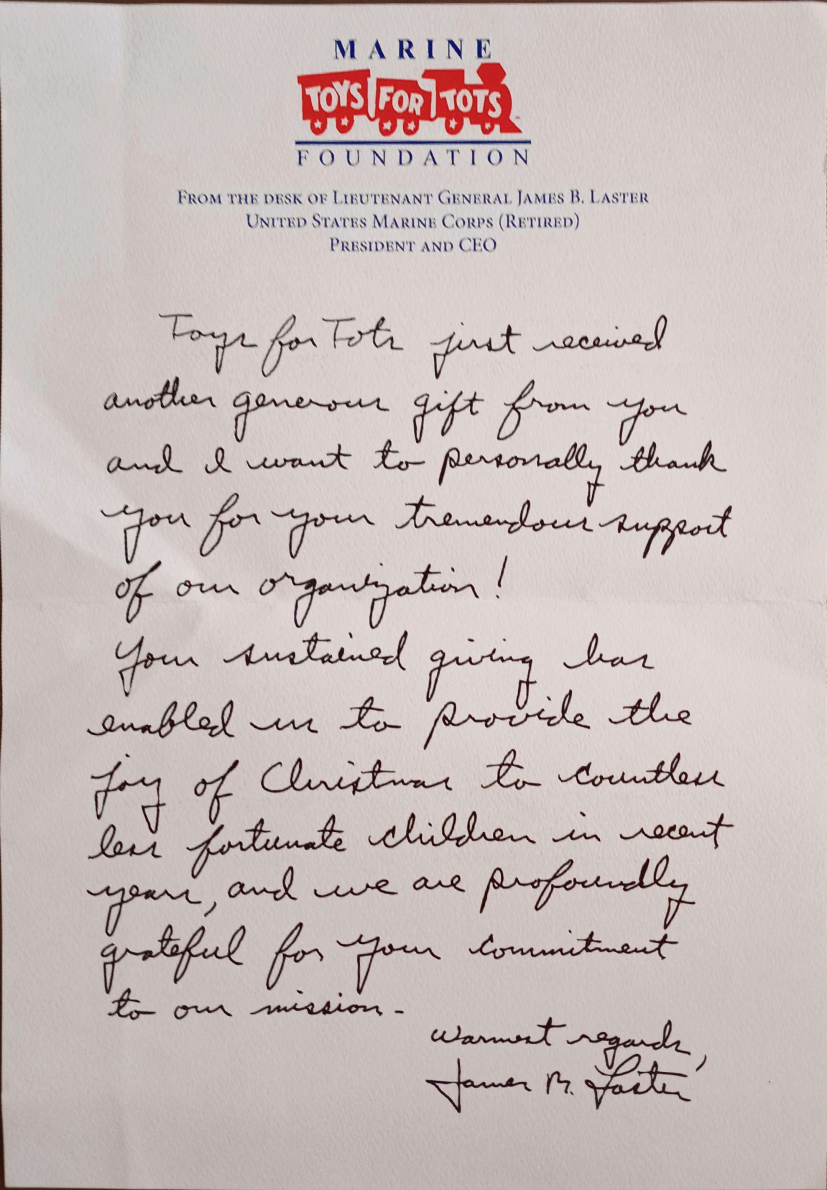 MARINE
TOYS FOR TOTS
FOUNDATION
FROM THE DESK OF LIEUTENANT GENERAL JAMES B. LASTER
UNITED STATES MARINE CORPS (RETIRED)
PRESIDENT AND CEO
Toys for Tots just received
another generous gift from you
and I want to personally thank
you for your tremendous support
of our organization!
Your sustained giving has
enabled us to provide the
joy of Christmas to countless
less fortunate children in recent
years, and we are profoundly
grateful for your commitment
to our mission.
Warmest regards,
James B. Laster